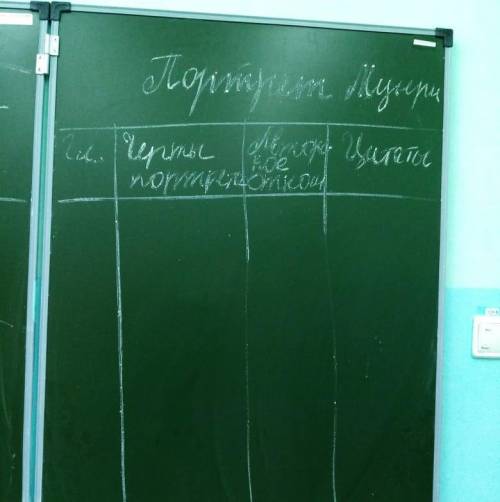 Портрет Мцыри
Гл. Черты портрета Авторское отнош. Цитаты